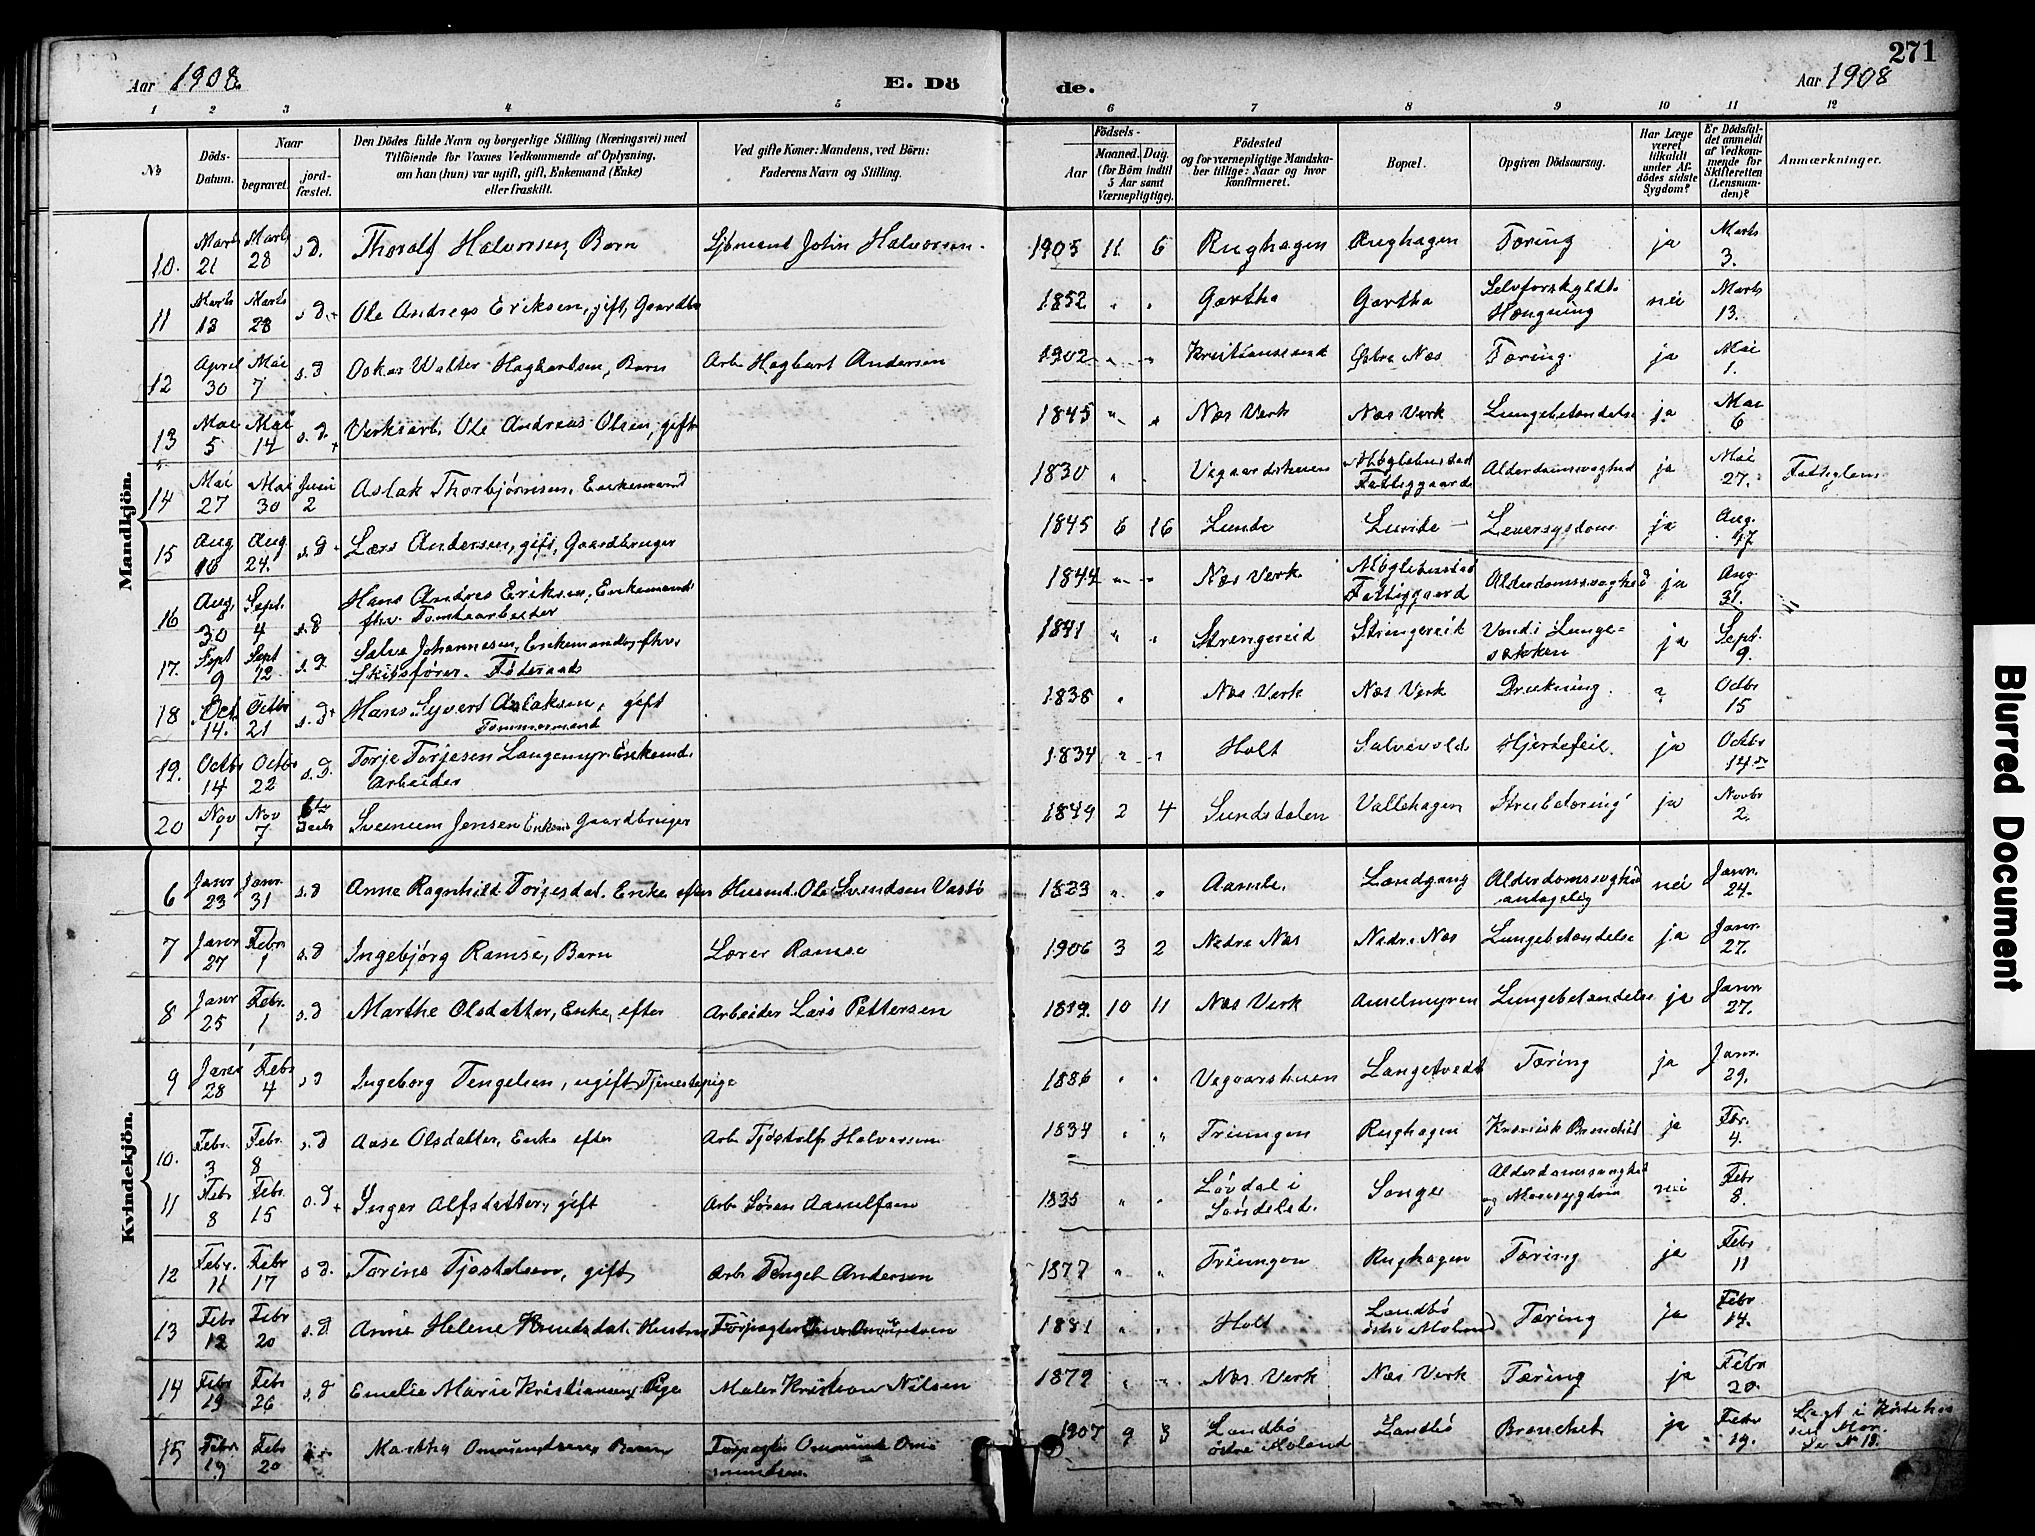 271
Aar 1908.
E. Dö
de.
Aar 1908
1 2 3 4 5 6 7 8 9 10 11 12
No
Döds-Datum.
Naar
begravet.
jord-fæstet.
Den Dödes fulde Navn og borgerlige Stilling (Næringsvei) med
Tilföiende for Voxnes Vedkommende af Oplysning,
om han (hun) var ugift, gift, Enkemand (Enke)
eller fraskilt.
Ved gifte Koner: Mandens, ved Börn:
Faderens Navn og Stilling.
Födsels-
Aar
Maaned. Dag.
(for Börn indtil
5 Aar samt
Værnepligtige).
Födested
og for værnepligtige Mandska-
ber tillige: Naar og hvor
konfirmeret.
Bopæl.
Opgiven Dödsaarsag.
Har Læge
været
tilkaldt
under Af-
dödes sidste
Sygdom?
Er Dödsfal-
det anmeldt
af Vedkom-
mende for
Skifteretten
(Lensman-
den)?
Anmærkninger.
Mandkjön.
10. Marts 21 Marts 28 s.D. Thoralf Halvorsen, Barn Sjömand John Halvorsen. 1905 11 6 Rughagen Rughagen Tæring ja Marts 3.
11 Marts 13 Marts 28 s.D. Ole Andreas Eriksen, gift, Gaardbr 1852 " " Gartha Gartha Selvforskyldt Hængning nei Marts 13.
12 April 30 Mai 7 s.D Oskar Walter Hagbartsen, Barn Arb. Hagbart Andersen 1902 " " Kristianssund Östre Næs Tæring. ja Mai 1.
13 Mai 5 Mai 14 s.D. Verksarb. Ole Andreas Olsen, gift 1845 " " Næs Verk Næs Verk Lungebetændelse ja Mai 6
14 Mai 27 Mai 30 Juni 2 Aslak Thorbjörnsen, Enkemand 1830 " . Vegaardsheien Möglebustad Fattiggaard Alderdomssvaghed ja Mai 27. Fattiglem
15 Aug 16 Aug 24. s.D. Lars Andersen, gift, Gaardbruger 1845 6 16 Lunde Lunde Leversygdom ja Aug. 17
16 Aug. 30 Sept. 4 s.D Hans Andres Eriksen, Enkemand fhv. Tomtearbeider 1844 " " Næs Verk Möglebustad Fattiggaard Alderdomssvaghed ja Aug. 31.
17. Sept 9 Sept 12 s.D. Salve Johannesen, Enkemand, fhv. Skibsförer. Föderaad 1841 " " Strengereid Strengereid Vand i Lunge-sækken ja Sept. 9.
18 Oct. 14. Octbr 21 s.D Hans Syvert Aslaksen, gift Tømmermand 1838 " Næs Verk Næs Verk Drukning. ? Octbr 15
19. Octbr 14 Octbr 22 s.D. Torje Torjesen Langemyr Enkemd. Arbeider 1834 " " Holt Salvevold Hjertefeil. ja Octbr 14.
20 Nov 1 Nov 7 Svenum Jensen Enkem Gaardbruger 1849 2 4 Sundsdalen Vallehagen Strubetæring ja Novbr 2.
Kvindekjön.
6 Janr 23 Janr. 31 s.D Anne Ragnhild Torjesdat. Enke efter Husmd. Ole Svendsen Vastö 1823 " " Aamle. Landgang Alderdomssvaghed antagelig nei Janr. 24.
7 Janr 27 Febr 1 s.D Ingebjörg Ramse, Barn Lærer Ramse 1906 3 2 Nedre Næs Nedre Næs Lungebetændelse ja Janr. 27.
8 Janr 25 Febr. 1 s.D Marthe Olsdatter, Enke, efter Arbeider Lars Pettersen 1819. 10 11 Næs Verk Auselmyren Lungebetændelse ja Janr 27.
9 Janr 28 Febr 4 s.D Ingeborg Tengelsen, ugift Tjenestepige 1886 " " Vegaarsheien Langetvedt Tæring ja Janr. 29.
10. Febr. 3 Febr. 8 s.D Aase Olsdatter, Enke efter Arb. Tjöstolf Halvorsen 1834 " " Triungen Rughagen Kronisk Bronchit ja Fbr. 4.
11 Febr 8 Febr. 15 s.D Inger Alfsdatter, gift Arb. Sören Aanulfsen 1835 " " Lövdal i Söndeled. Songe Alderdomssvaghed og Mavesygdom nei Febr 8.
12 Febr. 11 Febr 17 s.D. Torine Tjostolsen, gift Arb. Tengel Andersen 1877 " " Triungen Rughagen Tæring ja Febr 11
13 Febr 12 Febr 20 s.D Anne Helene Knudsdat. Hustru Forpagter 1881 " " Holt Landbö östre Moland Tæring ja Febr 14.
14 Febr 19 Febr 26 s.D Emelie Marie Kristiansen, Pige Maler Kristian Nilsen 1879 " " Næs Verk Næs Verk Tæring ja Febr 20.
15 Febr. 19 Febr 20 Martha Omundsen, Barn Forpagter Omund Omundsen. 1907 9 3 Landbö östre Moland Landbö Bronchit ja Febr 19. Lagt i Kiste hos sin Mor. Se N 13.
Blurred Document